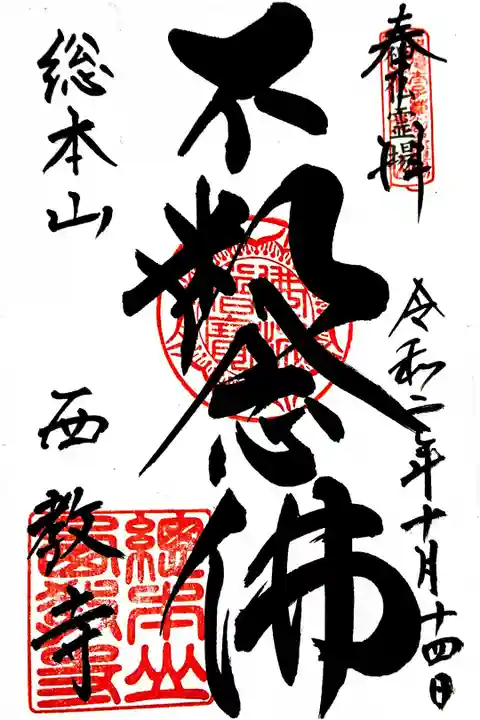 奉拝
令和二年十月十四日
不断念佛
総本山
西教寺
總本山
西教寺